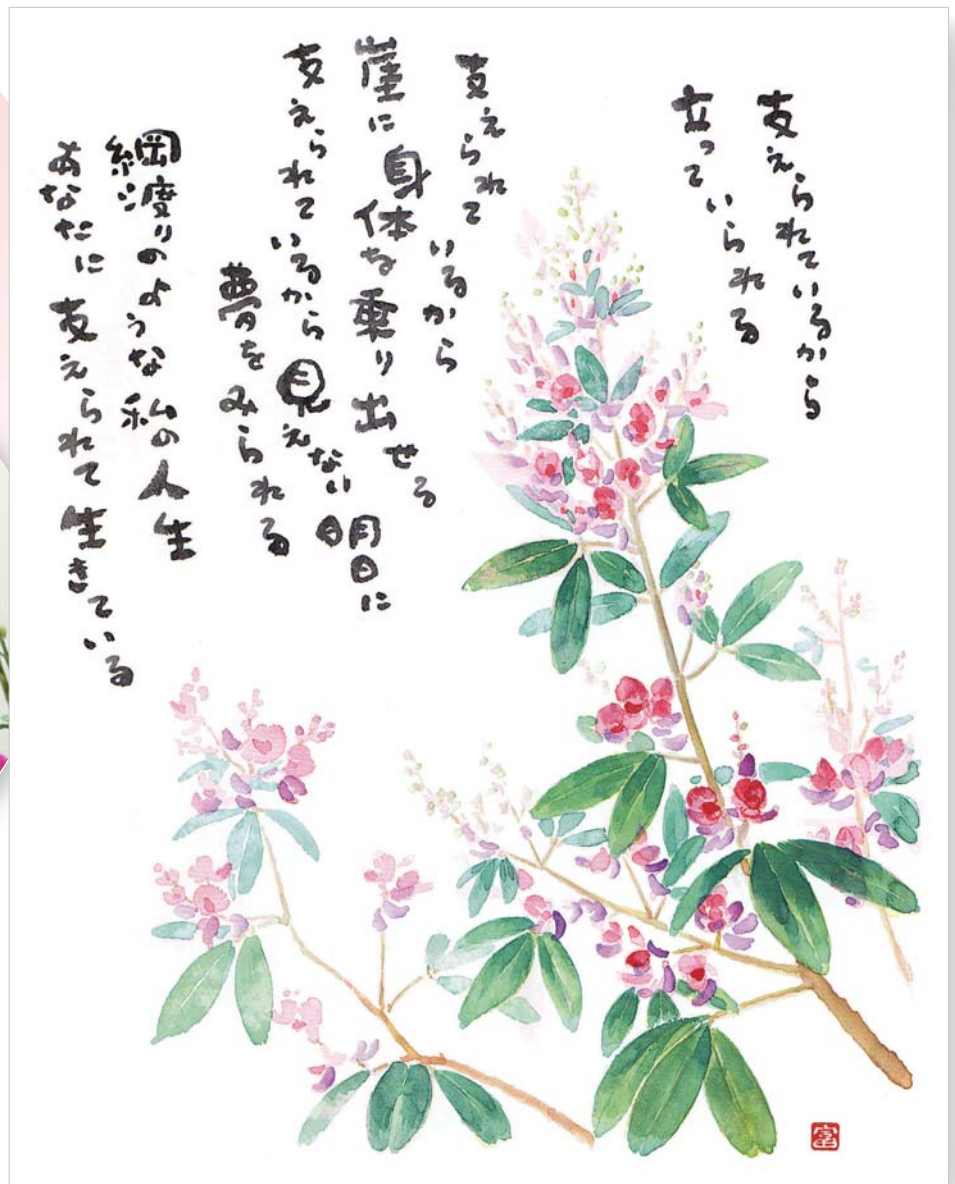 支えられているから
立っていられる
支えられて
いるから
崖に身体を乗り出せる
支えられているから見えない明日に
夢をみられる
綱渡りのような私の人生
あなたに支えられて生きている
富